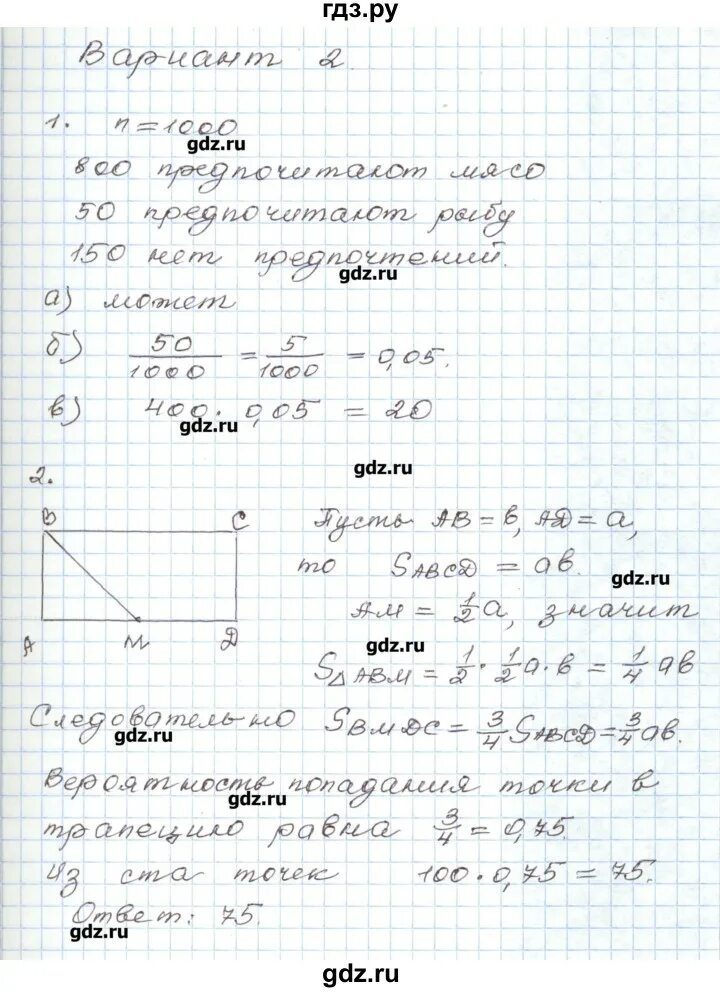 гдз.ру
Вариант 2
1. n=1000
gdz.ru
800 предпочитают мясо
50 предпочитают рыбу
150 нет предпочтений.
gdz.ru
а) может
б) 50/1000 = 5/1000 = 0,05.
gdz.ru
в) 400 · 0,05 = 20
gdz.ru
gdz.ru
2.
B C
A M D
Пусть AB = в, AD = a,
то S ABCD = aв.
gdz.ru
AM = 1/2 a, значит
gdz.ru
S△ABM = 1/2 · 1/2 a · в = 1/4 aв
Следовательно S BMDC = 3/4 S ABCD = 3/4 aв.
gdz.ru
Вероятность попадания точки в
gdz.ru
трапецию равна 3/4 = 0,75.
Из ста точек 100 · 0,75 = 75.
Ответ: 75.
gdz.ru
gdz.ru